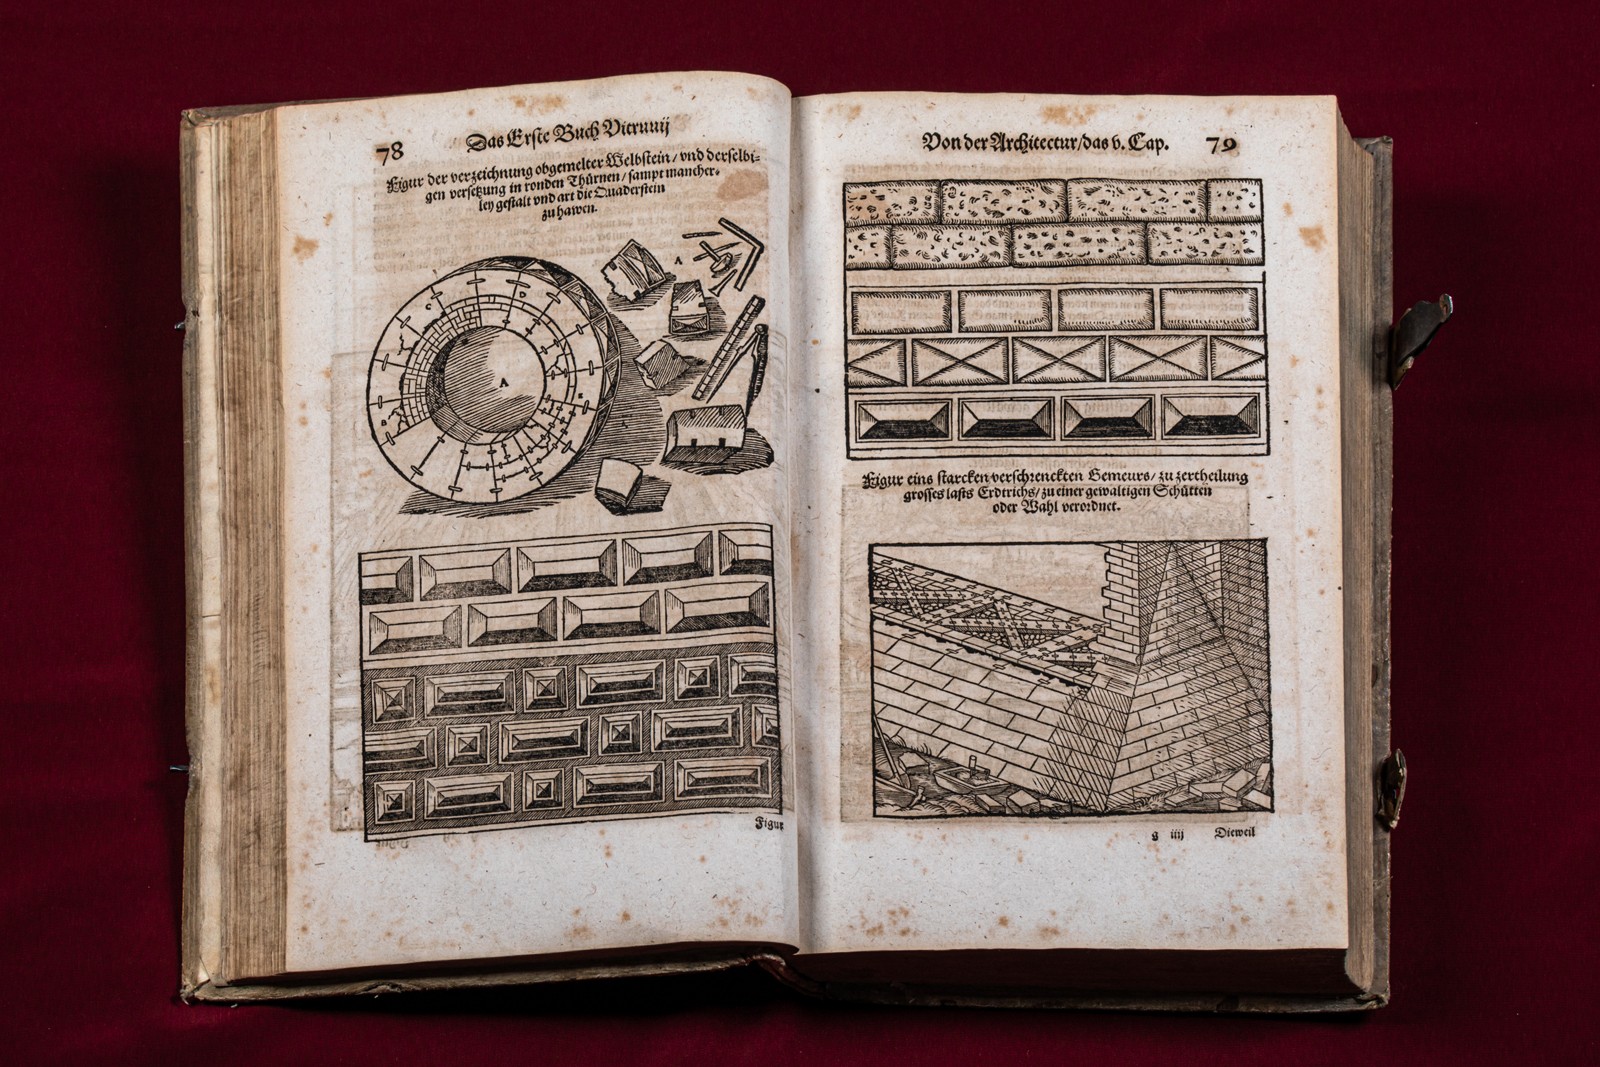 78
Das Erste Buch Vitruuij
Figur der verzeichnung obgemelter Welbstein / vnd derselbi⸗
gen versetzung in ronden Thürnen / sampt mancher⸗
ley gestalt vnd art die Quaderstein
zu hawen.
A
D
C
A
E
B
Figur
Von der Architectur / das v. Cap.
79
Figur eins starcken verschrenckten Gemeurs / zu zertheilung
grosses lasts Erdtrichs / zu einer gewaltigen Schütten
oder Wahl verordnet.
g iiij
Dieweil